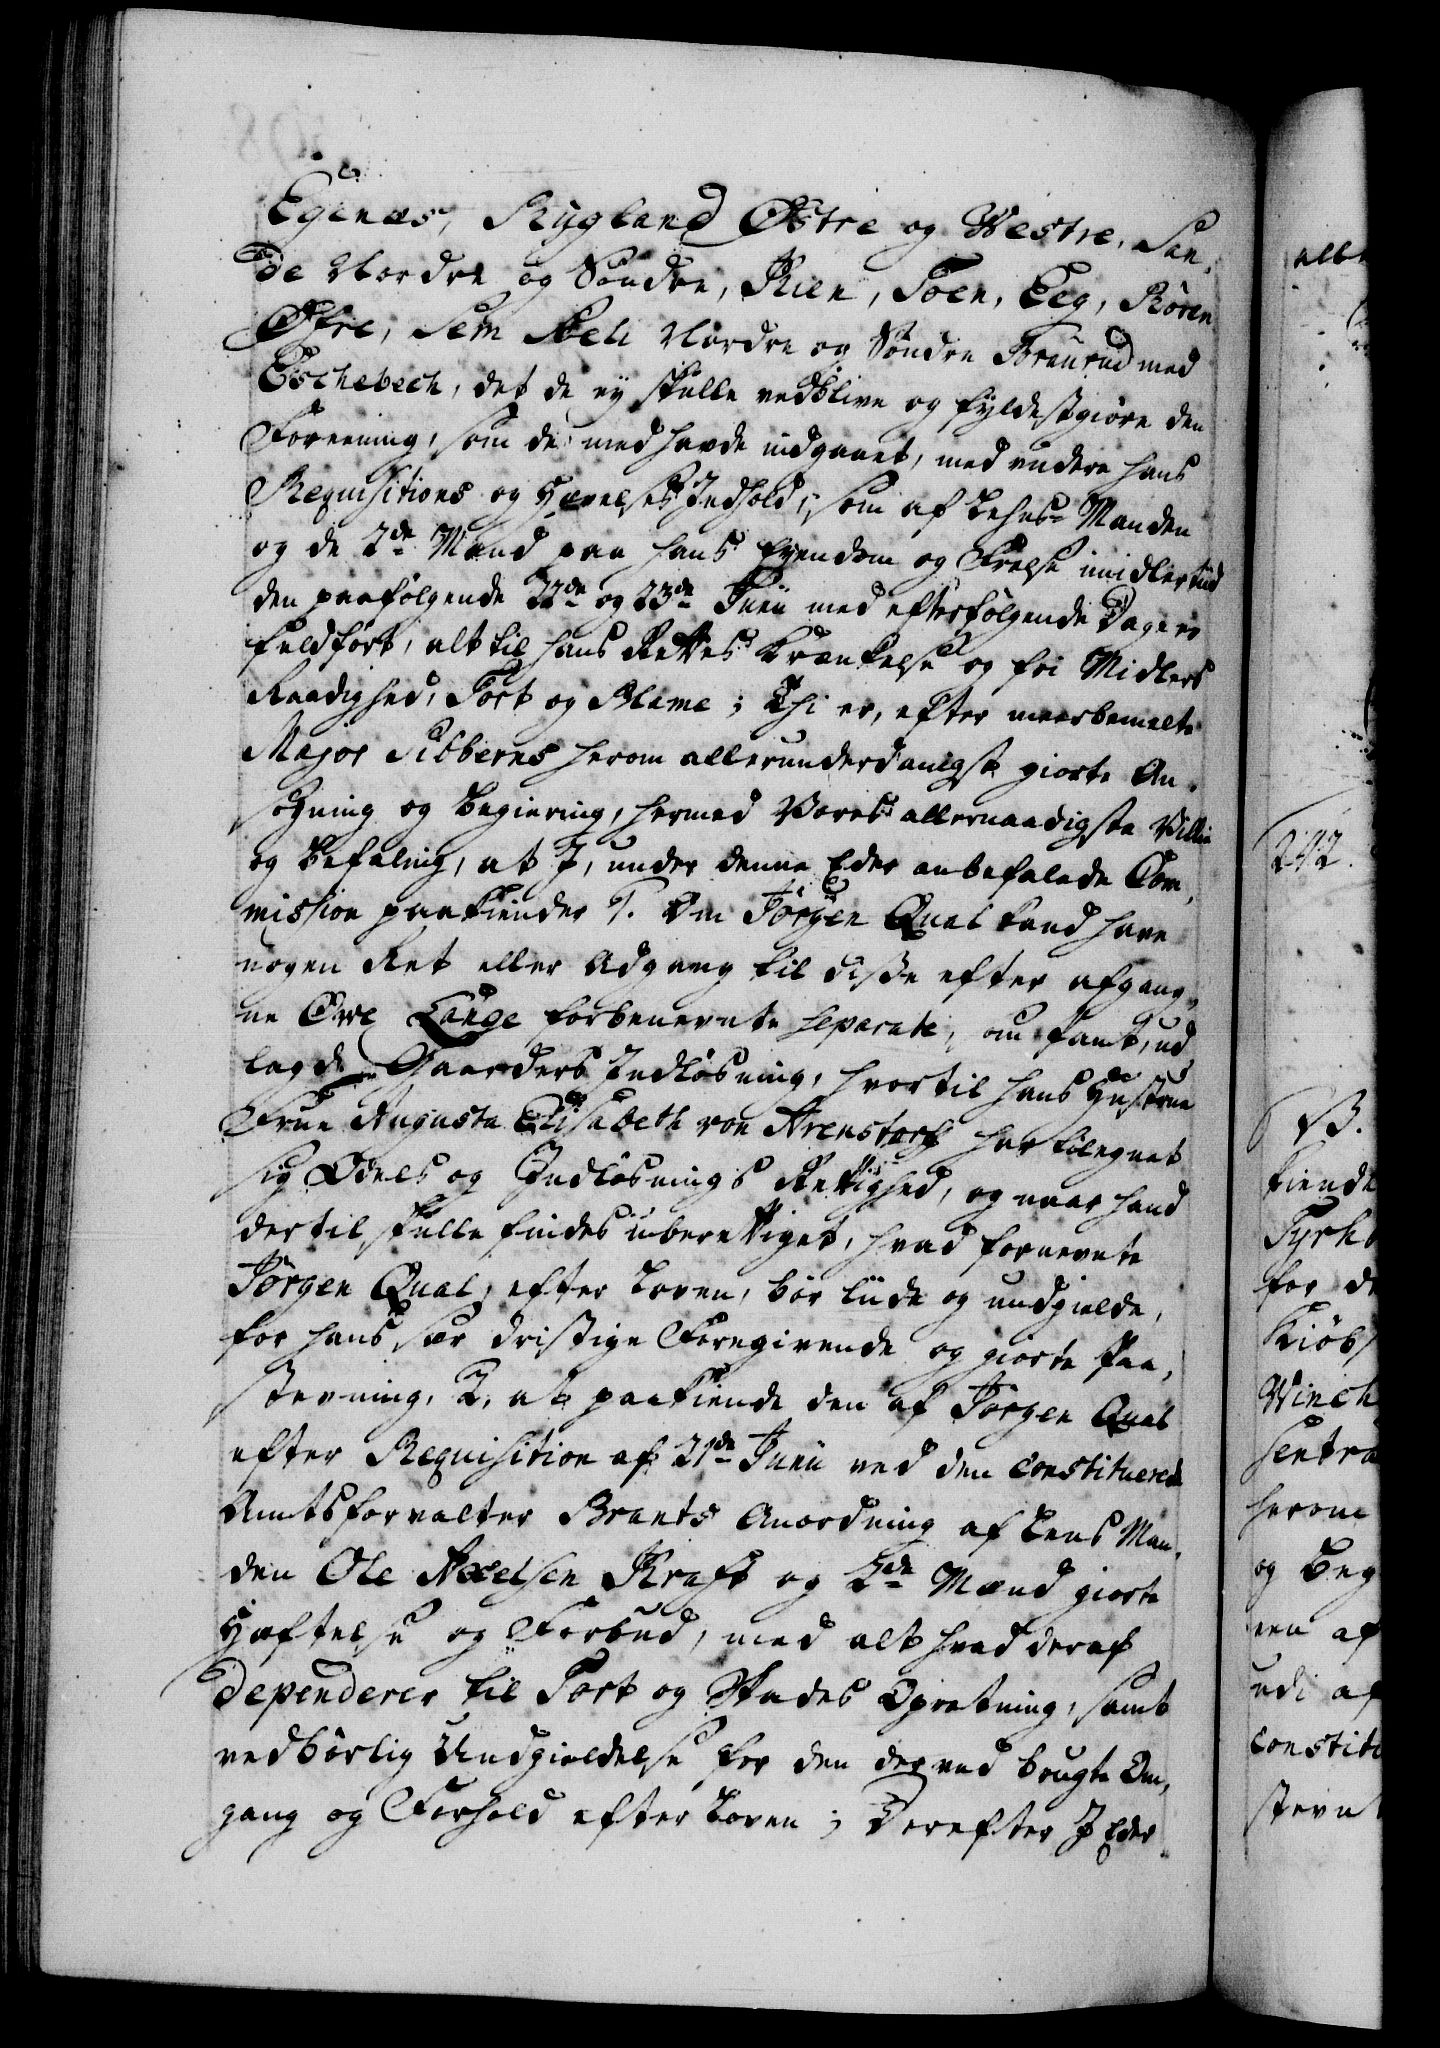 Egenæs, Rygland Østre og Westre, San,
de Nordre og Søndre, Kien, Toen, Eeg, Rören
Øfre, Sem Næli Nordre og Søndre Foenrud med
Eschebech, det de ey skulle vedblive og fyldestgiøre den
Foreening, som de med havde indgaaet, med videre hans
Requisitions og Hævelses Indhold, som af Lehns Manden
og de 2de Mænd paa hans Eyendom og Frelse imidlertiid
den paafølgende 22de og 23de Junii med efterfølgende Dage er
fuldført, alt til hans Rettes Krænkelse og frie Midlers
Raadighed, Tort og Blame; Thi er, efter meerbemelte
Major Sibberns herom allerunderdanigst giorte An,
søgning og Begiering, hermed Vores allernaadigste Villie
og Befaling, at I, under denne Eder anbefalede Com,
mission paakiender 1. Om Jørgen Qual kand have
nogen Ret eller Adgang til disse efter afgang,
ne Owe Lange forbenevnte separate, om samt, ud,
lagde Gaarders Indløsning, hvortil hans Hustrue
Frue Augusta Elisabeth von Arenstorf har tilegnet
sig Odels og Indløsnings Rettighed, og naar hand
dertil skulle findes uberettiget, hvad fornevnte
Jørgen Qual, efter Loven, bør liide og undgielde,
for hans saa dristige Foregivende og giorte Paa,
stevning, 2, at paakiende den af Jørgen Qual
efter Requisition af 21de Junii ved den constituerede
Amtsforvalter Brants Anordning af Lens Man,
den Ole Axelsen Kraft og 2de Mænd giorte
Hæftelse og Forbud, med alt hvad deraf
dependerer til Tort og Skades Opretning, samt
vedbørlig Undgieldelse for den derved brugte Om,
gang og Forhold efter Loven; Derefter I Eder
242.